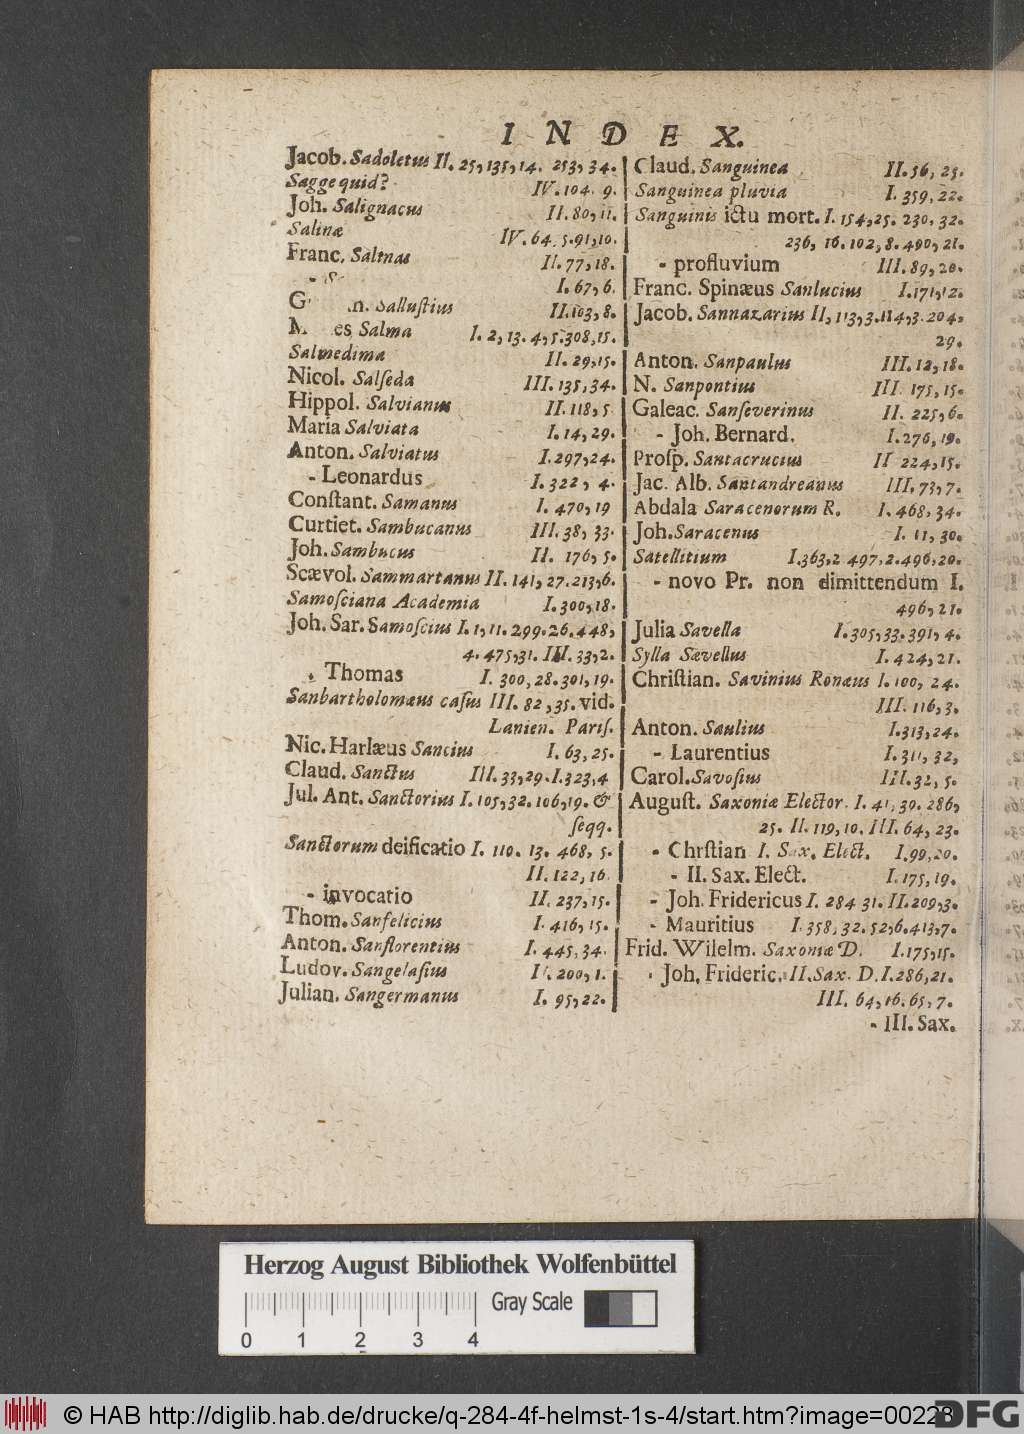 INDEX.
Jacob. Sadoletus II. 25,135,14. 253,34.
Sagge quid? IV. 104. 9.
Joh. Salignacus II. 80,11.
Salinæ IV. 64. 5.91,10.
Franc. Salinas II. 77,18.
I. 67,6.
Sallustius II.103,8.
Salma I. 2,13. 4,5.308,15.
Salmedima II. 29,15.
Nicol. Salseda III. 135,34.
Hippol. Salvianus II. 118,5
Maria Salviata I. 14,29.
Anton. Salviatus I.297,24.
- Leonardus I.322, 4.
Constant. Samanus I. 470,19
Curtiet. Sambucanus III. 38, 33.
Joh. Sambucus II. 176,5.
Scævol. Sammartanus II. 141, 27.213,6.
Samosciana Academia I.300,18.
Joh. Sar. Samoscius I. 1,11. 299.26.448,
4. 475,31. III. 33,2.
- Thomas I. 300,28.301,19.
Sanbartholomæus casus III. 82,35. vid.
Lanien. Paris.
Nic. Harlæus Sancius I. 63,25.
Claud. Sanctus III. 33,29.I.323,4
Jul. Ant. Sanctorius I. 105,32. 106,19. &
seqq.
Sanctorum deificatio I. 110. 13. 468, 5.
II. 122,16.
- invocatio II. 237,15.
Thom. Sanfelicius I. 416,15.
Anton. Sanflorentius I. 445,34.
Ludov. Sangelasius 200,1.
Julian. Sangermanus I. 95,22.
Claud. Sanguinea II. 56, 25.
Sanguinea pluvia I. 359,22.
Sanguinis ictu mort. I. 154,25. 230, 32.
236, 16. 102,8. 490,21.
- profluvium III. 89,20.
Franc. Spinæus Sanlucius I.171,12.
Jacob. Sannazarius II,113,3.114,3.204,
29.
Anton. Sanpaulus III. 12,18.
N. Sanpontius III. 175,15.
Galeac. Sanseverinus II. 225,6.
- Joh. Bernard. I.276,19.
Prosp. Santacrucius II 224,15.
Jac. Alb. Santandreanus III. 73,7.
Abdala Saracenorum R. I. 468,34.
Joh. Saracenus I. 11,30.
Satellitium I.363,2 497,2.496,20.
- novo Pr. non dimittendum I.
496,21.
Julia Savella I.305,33.391,4.
Sylla Sævellus I. 424,21.
Christian. Savinius Ronæus I.100, 24.
III. 116,3.
Anton. Saulius I.313,24.
- Laurentius I. 311, 32,
Carol. Savosius III.32,5.
August. Saxoniæ Elector. I. 41,30. 286,
25. II. 119,10. III. 64, 23.
- Chrstian I. Sax. Elect. I.99,20.
- II. Sax. Elect. I.175,19.
- Joh. Fridericus I. 284 31. II.209,3.
- Mauritius I.358,32. 52,6.413,7.
Frid. Wilelm. Saxoniæ D. I.175,15.
- Joh. Frideric. II.Sax. D.I.286,21.
III. 64,16.65,7.
- III. Sax.
Herzog August Bibliothek Wolfenbüttel
Gray Scale
0 1 2 3 4
© HAB http://diglib.hab.de/drucke/q-284-4f-helmst-1s-4/start.htm?image=00228
DFG